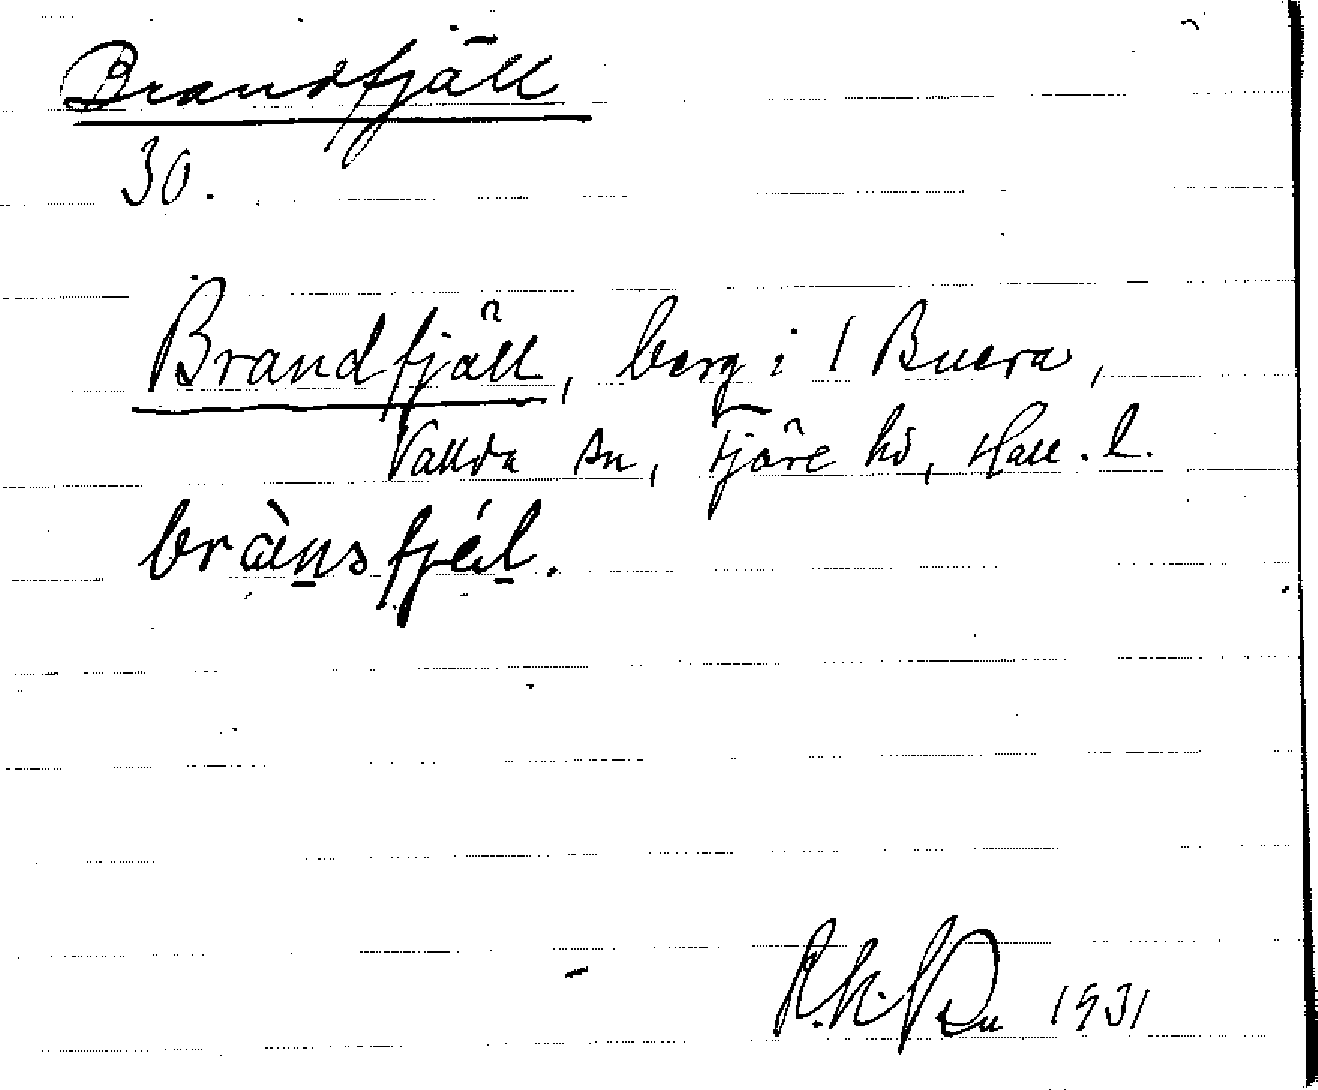 Brandfjäll
30.
Brandfjäll, berg i / Buera,
Vallda sn, Fjäre hd, Hall. l.
brànsfjél.
1931